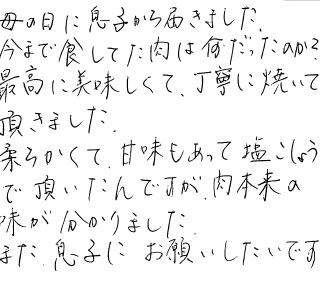 母の日に息子から届きました。
今まで食してた肉は何だったのか?
最高に美味しくて、丁寧に焼いて
頂きました。
柔らかくて、甘味もあって塩こしょう
で頂いたんですが、肉本来の
味が分かりました。
また、息子にお願いしたいです